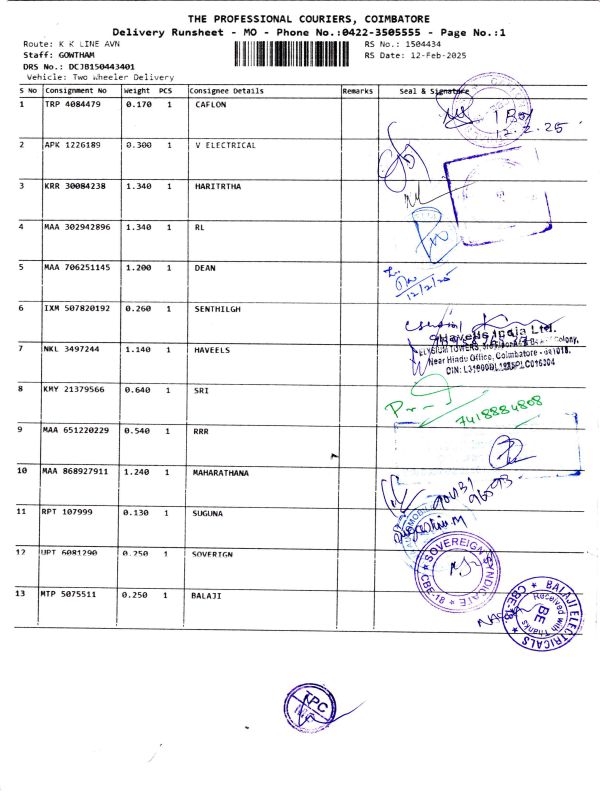 THE PROFESSIONAL COURIERS, COIMBATORE
Delivery Runsheet - MO - Phone No.:0422-3505555 - Page No.:1
Route: K K LINE AVN RS No.: 1504434
Staff: GOWTHAM RS Date: 12-Feb-2025
DRS No.: DCJB150443401
Vehicle: Two Wheeler Delivery
S No Consignment No Weight PCS Consignee Details Remarks Seal & Signature
1 TRP 4084479 0.170 1 CAFLON
1 Box
12.2.25
2 APK 1226189 0.300 1 V ELECTRICAL
3 KRR 30084238 1.340 1 HARITRTHA
4 MAA 302942896 1.340 1 RL
5 MAA 706251145 1.200 1 DEAN
12/2/25
6 IXM 507820192 0.260 1 SENTHILGH
Havells India Ltd.
7 NKL 3497244 1.140 1 HAVEELS
ELYSIUM TOWERS, Colony,
Near Hindu Office, Coimbatore - 641018.
CIN: L31900DL1983PLC016304
8 KMY 21379566 0.640 1 SRI
7418884808
9 MAA 651220229 0.540 1 RRR
10 MAA 868927911 1.240 1 MAHARATHANA
11 RPT 107999 0.130 1 SUGUNA
12 UPT 6081290 0.250 1 SOVERIGN
SOVEREIGN SYNDICATE
CBE-18
13 MTP 5075511 0.250 1 BALAJI
BALAJI ELECTRICALS
CBE-18.
Received with Thanks
BE
TPC